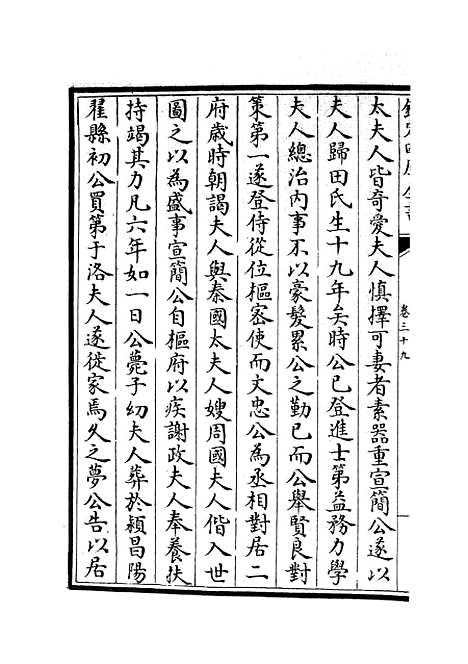 欽定四庫全書
卷三十九
太夫人皆奇愛夫人慎擇可妻者素器重宣簡公遂以
夫人歸田氏生十九年矣時公已登進士第益務力學
夫人總治内事不以豪髮累公之勤已而公舉賢良對
策第一遂登侍從位樞密使而文忠公為丞相對居二
府歲時朝謁夫人與秦國太夫人嫂周國夫人偕入世
圖之以為盛事宣簡公自樞府以疾謝政夫人奉養扶
持竭其力凡六年如一日公薨子幼夫人葬於潁昌陽
翟縣初公買第于洛夫人遂徙家焉久之夢公告以居